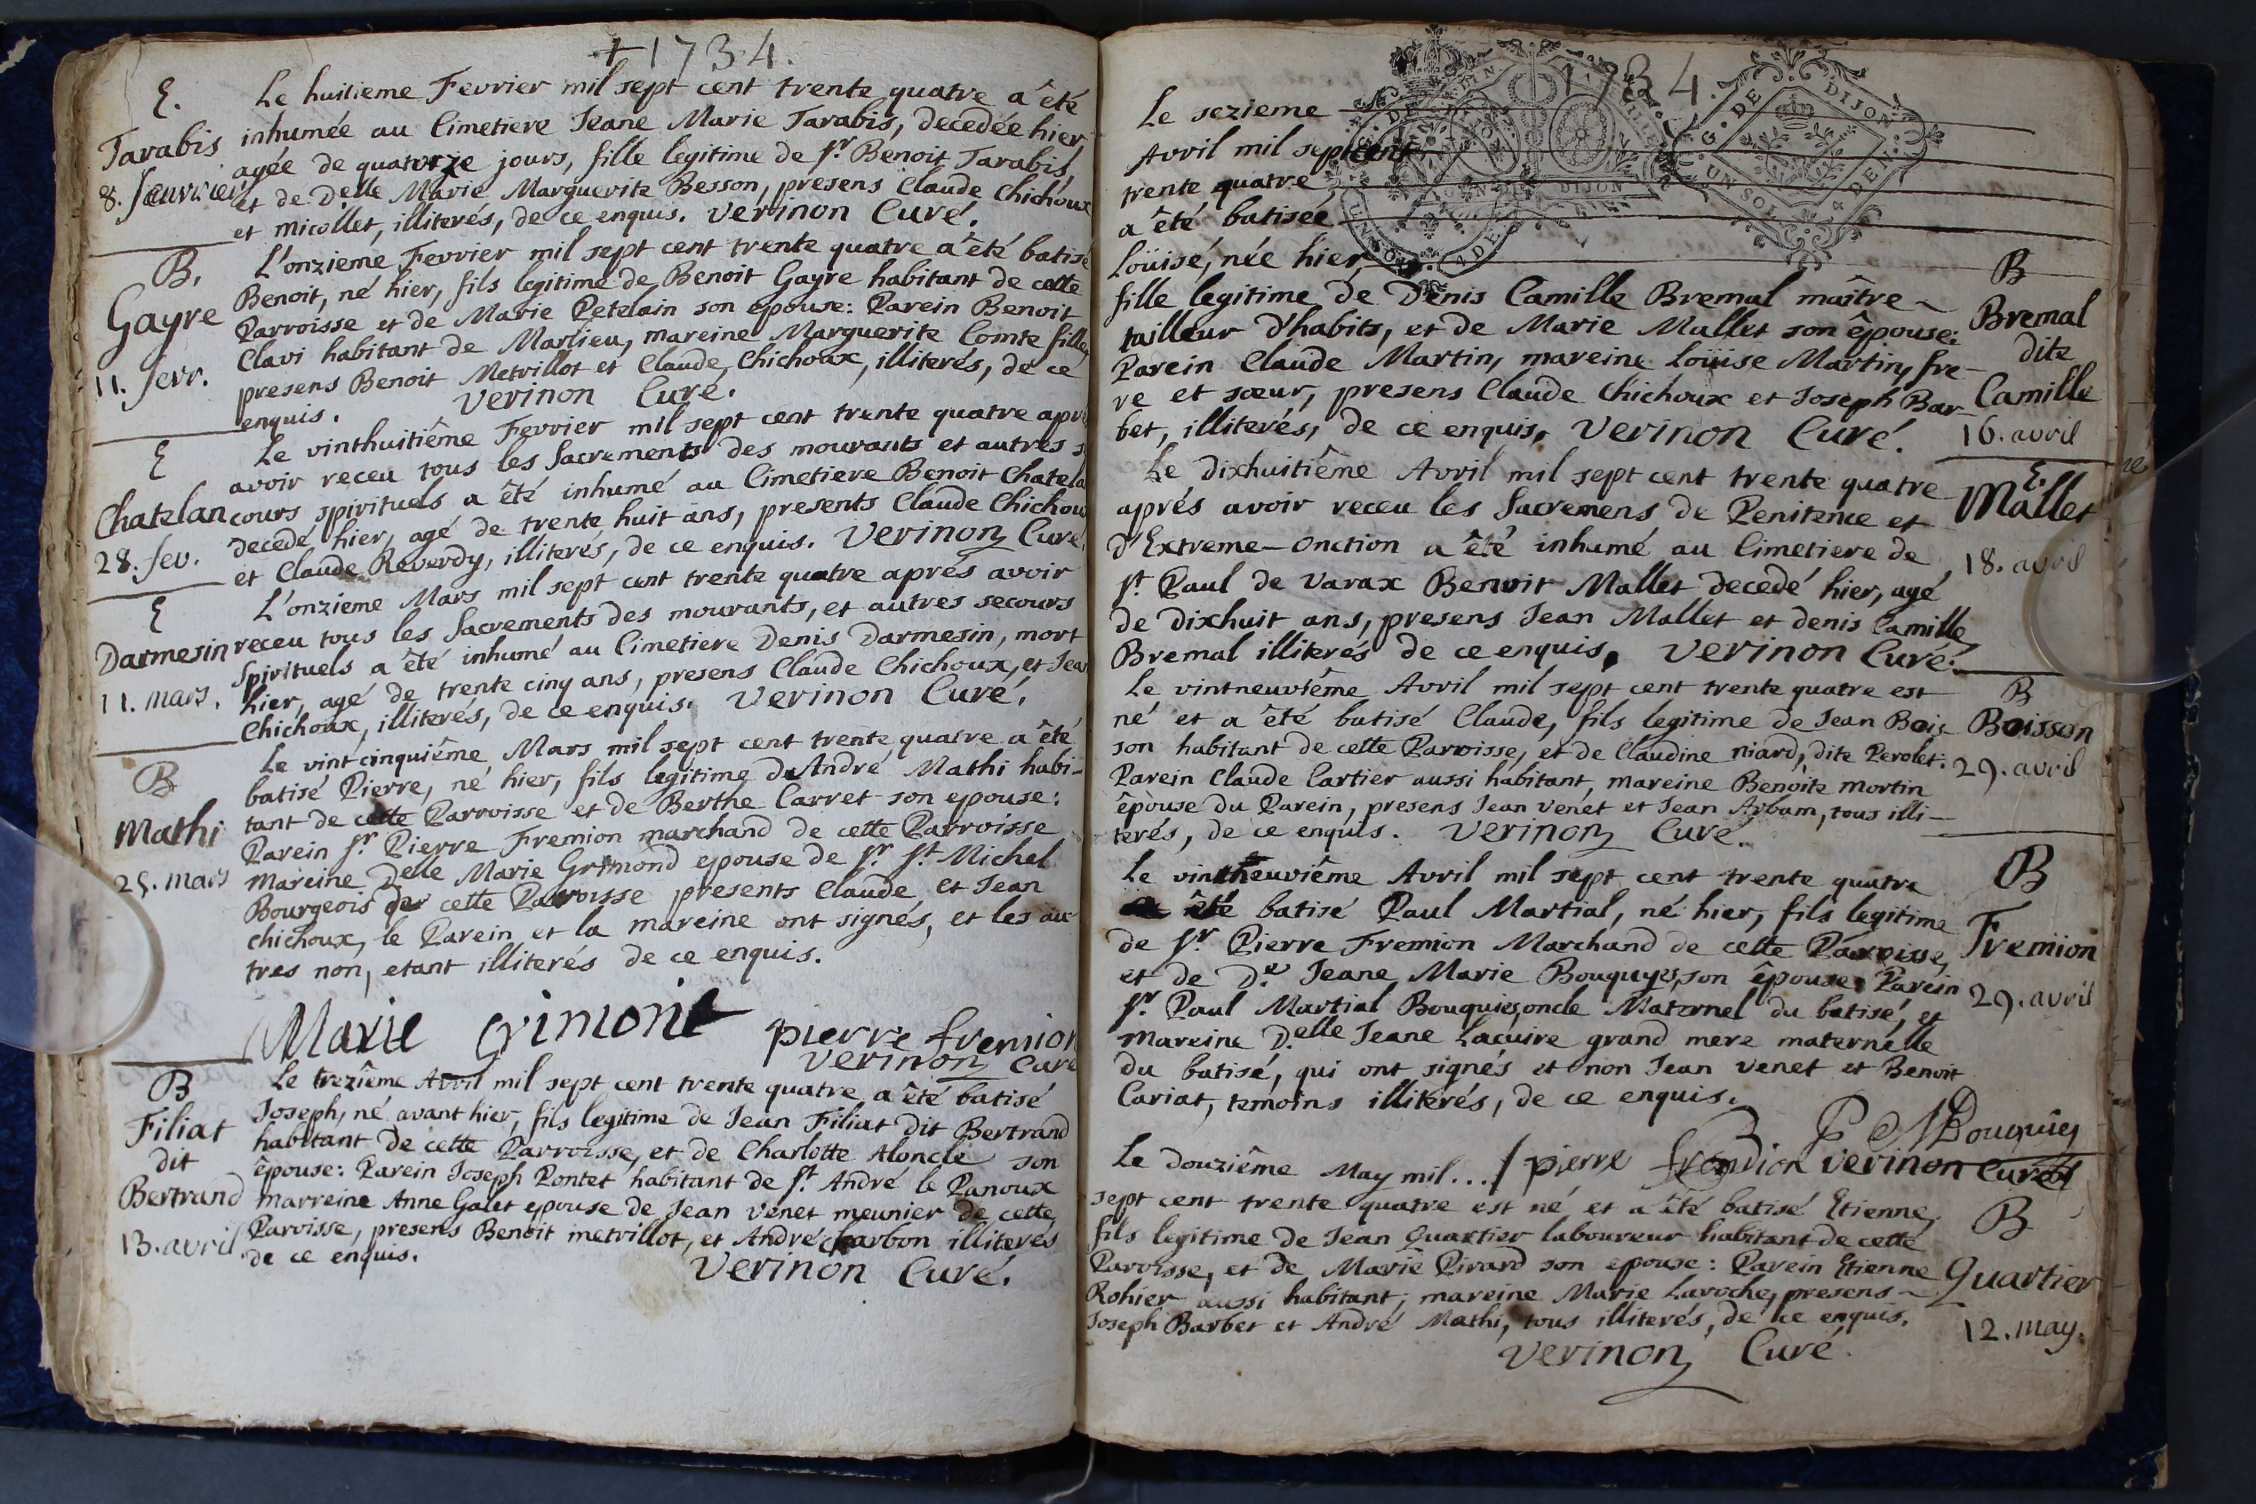 +1734.
E.
Tarabis
8. Feuvrier
Le huitieme Fevrier mil sept cent trente quatre a êté
inhumée au Cimetiere Jeane Marie Tarabis, decedée hier,
agée de quatorze jours, fille legitime de Sr. Benoit Tarabis,
et de Delle Marie Marguerite Besson, presens Claude Chichoux
et micollet, illiterés, de ce enquis. Verinon Curé.
B.
Gayre
11. fevr.
L'onzieme Fevrier mil sept cent trente quatre a êté batisé
Benoit, né hier, fils legitime de Benoit Gayre habitant de cette
Parroisse et de Marie Petelain son epouse: Parein Benoit
Clavi habitant de Marlieu, mareine Marguerite Comte fille,
presens Benoit Metrillot et Claude Chichoux, illiterés, de ce
enquis. Verinon Curé.
E
Chatelan
28. fev.
Le vinthuitiême Fevrier mil sept cent trente quatre apr
avoir receu tous les Sacrements des mourants et autres s
cours spirituels a êté inhumé au Cimetiere Benoit Chatela
decedé hier, agé de trente huit ans, presents Claude Chichou
et Claude Reverdy, illiterés, de ce enquis. Verinon Curé.
E
Darmesin
11. mars.
L'onzieme Mars mil sept cent trente quatre aprés avoir
receu tous les Sacrements des mourants, et autres secours
Spirituels a êté inhumé au Cimetiere Denis Darmesin, mort
hier, agé de trente cinq ans, presens Claude Chichoux, et Jean
Chichoux, illiterés, de ce enquis. Verinon Curé.
B
Mathi
25. mars
Le vint cinquiême Mars mil sept cent trente quatre a êté
batisé Pierre, né hier, fils legitime de André Mathi habi-
tant de cette Parroisse et de Berthe Carret son epouse:
Parein Sr. Pierre Fremion marchand de cette Parroisse
Mareine Delle Marie Grimond epouse de Sr. St. Michel
Bourgeois de cette Parroisse presents Claude et Jean
Chichoux, le Parein et la mareine ont signés, et les au-
tres non, etant illiterés de ce enquis.
Marie Grimond pierre fremion
Verinon Curé
B
Filiat
dit
Bertrand
13. avril
Le treziême Avril mil sept cent trente quatre, a êté batisé
Joseph, né avant hier, fils legitime de Jean Filiat dit Bertrand
habitant de cette Parroisse, et de Charlotte Aloncle son
êpouse: Parein Joseph Pontet habitant de St. André le Panoux
marreine Anne Galet epouse de Jean Venet meunier de cette
Paroisse, presens Benoit metrillot, et André charbon illiterés
de ce enquis.
Verinon Curé.
1734.
G. DE DIJON
UN SOL 4 DEN.
Le sezieme
Avril mil sept cent
trente quatre
a êté batisée
Loüise, née hier,
fille legitime de Denis Camille Bremal maître
tailleur d'habits, et de Marie Mallet son êpouse:
Parein Claude Martin, mareine Loüise Martin, fre-
re et sœur, presens Claude Chichoux et Joseph Bar-
bet, illiterés, de ce enquis, Verinon Curé.
B
Bremal
dite
Camille
16. avril
Le dixhuitiême Avril mil sept cent trente quatre
aprés avoir receu les Sacremens de Penitence et
d'Extreme-Onction a êté inhumé au Cimetiere de
St. Paul de Varax Benoit Mallet decedé hier, agé
de dixhuit ans, presens Jean Mallet et denis Camille
Bremal illiterés de ce enquis, Verinon Curé.
E.
Mallet
18. avril
Le vintneuviême Avril mil sept cent trente quatre est
né et a êté batisé Claude, fils legitime de Jean Bois-
son habitant de cette Parroisse, et de Claudine niard, dite Perolet.
Parein Claude Cartier aussi habitant, mareine Benoite Mortin
êpouse du Parein, presens Jean Venet et Jean Arbam, tous illi-
terés, de ce enquis. Verinon Curé.
B
Boisson
29. avril
Le vintneuviême Avril mil sept cent trente quatre
a êté batisé Paul Martial, né hier, fils legitime
de Sr. Pierre Fremion Marchand de cette Parroisse,
et de De. Jeane Marie Bouquyes, son êpouse: Parein
Sr. Paul Martial Bouquies, oncle Maternel du batisé, et
mareine Delle Jeane Lacuire grand mere maternelle
du batisé, qui ont signés et non Jean Venet et Benoit
Cariat, temoins illiterés, de ce enquis.
P M Bouquies
pierre fremion Verinon Curé
B
Fremion
29. avril
Le douziême May mil...
sept cent trente quatre est né et a êté batisé Etienne,
fils legitime de Jean Quartier laboureur habitant de cette
Paroisse, et de Marie Pirard son epouse: Parein Etienne
Rohier aussi habitant, mareine Marie Laroche, presens
Joseph Barbet et André Mathi, tous illiterés, de ce enquis.
Verinon Curé.
B
Quartier
12. may.